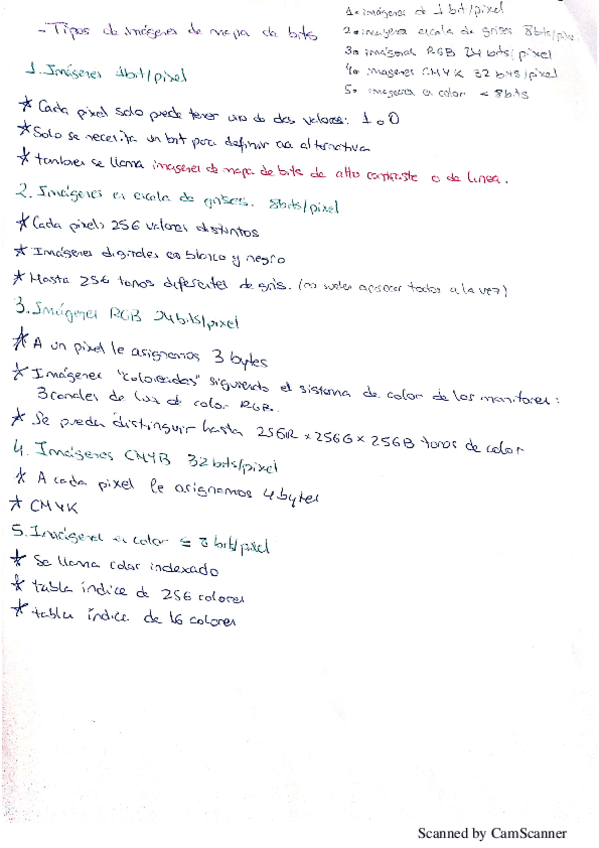 - Tipos de imágenes de mapa de bits
1. imágenes de 1 bit/pixel
2. imagenes escala de grises 8bits/pixe
3. imágenes RGB 24 bits/pixel
4. imagenes CMYK 32 bits/pixel
5. imagenes en color ≤ 8bits
1. Imágenes 1bit/pixel
* Cada pixel solo puede tener uno de dos valores: 1 o 0
* Solo se necesita un bit para definir la alternativa
* tambien se llama imagenes de mapa de bits de alto contraste o de linea.
2. Imágenes en escala de grises. 8bits/pixel
* Cada pixel: 256 valores distintos
* Imágenes digitales en blanco y negro
* Hasta 256 tonos diferentes de gris. (no suelen aparecer todos a la vez)
3. Imágenes RGB 24bits/pixel
* A un pixel le asignamos 3 bytes
* Imágenes "coloreadas" siguiendo el sistema de color de los monitores:
3 canales de luz de color RGB.
* Se pueden distinguir hasta 256R x 256G x 256B tonos de color
4. Imágenes CMYB 32bits/pixel
* A cada pixel le asignamos 4 bytes
* CMYK
5. Imágenes en color ≤ 8 bit/pixel
* Se llama color indexado
* tabla índice de 256 colores
* tabla índice de 16 colores
Scanned by CamScanner